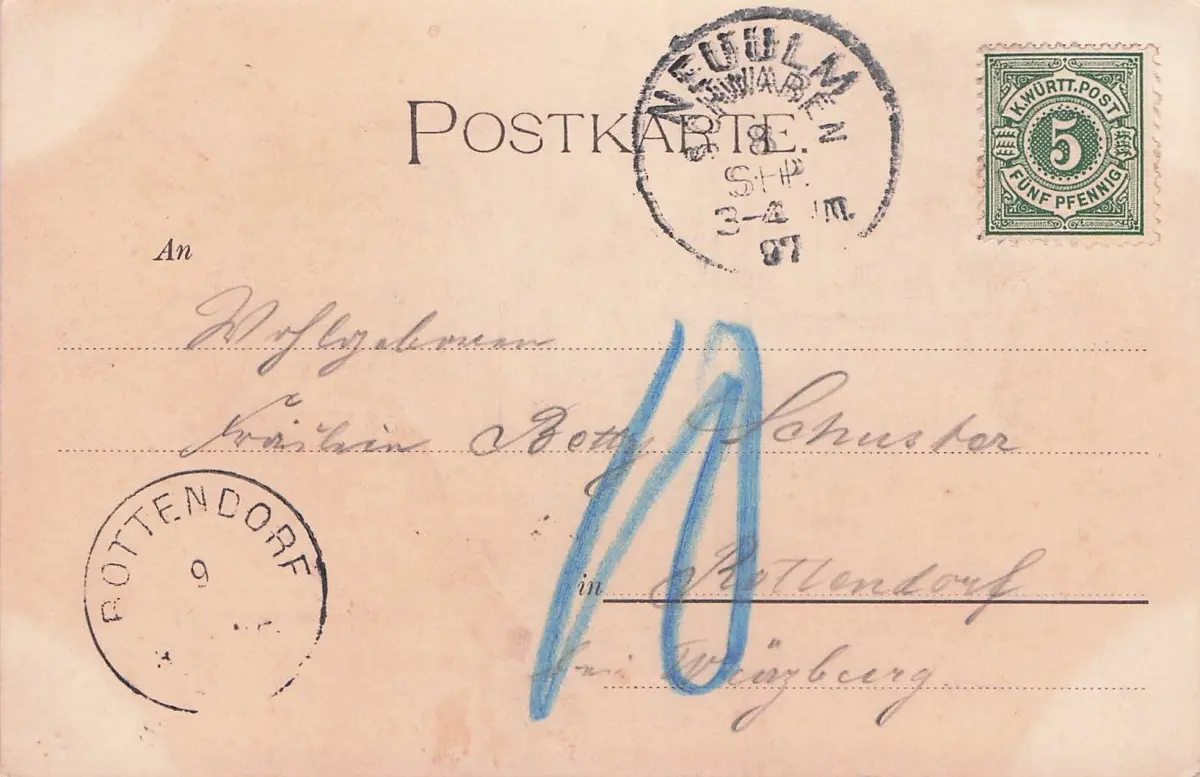 POSTKARTE.
NEUULM
SCHWABEN
8
SEP.
3-4
97
K. WÜRTT. POST
5
FÜNF PFENNIG
An
Wohlgeboren
Fräulein Betty Schuster
ROTTENDORF
9
10
in Rottendorf
bei Würzburg